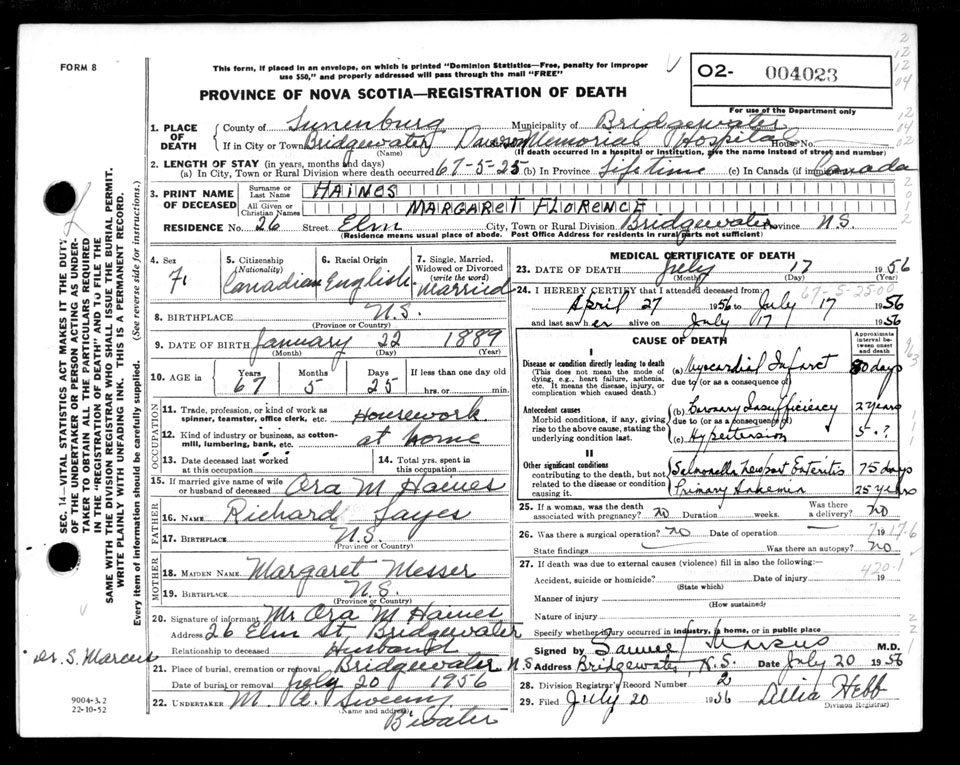 FORM 8
This form, if placed in an envelope, on which is printed "Dominion Statistics—Free, penalty for improper
use $50," and properly addressed will pass through the mail "FREE"
O2- 004023
PROVINCE OF NOVA SCOTIA—REGISTRATION OF DEATH
For use of the Department only
1. PLACE OF DEATH
County of Lunenburg Municipality of Bridgewater
If in City or Town Bridgewater Dawson Memorial Hospital House No.
(Name) (If death occurred in a hospital or institution, give the name instead of street and number)
2. LENGTH OF STAY (in years, months and days)
(a) In City, Town or Rural Division where death occurred 67-5-25 (b) In Province Lifetime (c) In Canada (if immigrant) Canada
3. PRINT NAME OF DECEASED
Surname or Last Name HAINES
All Given or Christian Names MARGARET FLORENCE
RESIDENCE No. 26 Street Elm City, Town or Rural Division Bridgewater Province N.S.
(Residence means usual place of abode. Post Office Address for residents in rural parts not sufficient)
4. Sex F.
5. Citizenship (Nationality) Canadian
6. Racial Origin English
7. Single, Married, Widowed or Divorced (write the word) Married
8. BIRTHPLACE N.S.
(Province or Country)
9. DATE OF BIRTH January 22 1889
(Month) (Day) (Year)
10. AGE in Years 67 Months 5 Days 25 If less than one day old
hrs. or min.
OCCUPATION
11. Trade, profession, or kind of work as spinner, teamster, office clerk, etc. Housework
12. Kind of industry or business, as cotton-mill, lumbering, bank, etc. at home
13. Date deceased last worked at this occupation
14. Total yrs. spent in this occupation
15. If married give name of wife or husband of deceased Ora M Haines
FATHER
16. NAME Richard
17. BIRTHPLACE N.S.
(Province or Country)
MOTHER
18. MAIDEN NAME Margaret Messer
19. BIRTHPLACE N.S.
(Province or Country)
20. Signature of informant Mr Ora M Haines
Address 26 Elm St. Bridgewater
Relationship to deceased Husband
21. Place of burial, cremation or removal Bridgewater N.S.
Date of burial or removal July 20 1956
22. UNDERTAKER M. A. Sweeny
(Name and address)
B'water
MEDICAL CERTIFICATE OF DEATH
23. DATE OF DEATH July 17 1956
(Month) (Day) (Year)
67-5-25-00
24. I HEREBY CERTIFY that I attended deceased from
April 27 1956 to July 17 1956
and last saw her alive on July 17 1956
CAUSE OF DEATH
Approximate interval between onset and death
I
Disease or condition directly leading to death
(This does not mean the mode of dying, e.g., heart failure, asthenia, etc. It means the disease, injury, or complication which caused death.)
(a) Myocardial Infarct 80 days
due to (or as a consequence of)
Antecedent causes
Morbid conditions, if any, giving rise to the above cause, stating the underlying condition last.
(b) Coronary Insufficiency 2 years
due to (or as a consequence of)
(c) Hypertension 5 - ?
II
Other significant conditions
contributing to the death, but not related to the disease or condition causing it.
Salmonella Newport Enteritis 75 days
Primary 25 years
25. If a woman, was the death associated with pregnancy? no Duration weeks. Was there a delivery? no
26. Was there a surgical operation? no Date of operation 19
State findings Was there an autopsy? no
27. If death was due to external causes (violence) fill in also the following:
420.1
Accident, suicide or homicide? Date of injury 19
(State which)
Manner of injury
(How sustained)
Nature of injury
Specify whether injury occurred in industry, in home, or in public place
Signed by Samuel Marcus M.D.
Address Bridgewater, N.S. Date July 20 1956
28. Division Registrar's Record Number 2
29. Filed July 20 1956 Delia Hebb
Division Registrar
SEC. 14—VITAL STATISTICS ACT MAKES IT THE DUTY
OF THE UNDERTAKER OR PERSON ACTING AS UNDER-
TAKER TO OBTAIN ALL THE PARTICULARS REQUIRED
IN THE "REGISTRATION OF DEATH" AND TO FILE THE
SAME WITH THE DIVISION REGISTRAR WHO SHALL ISSUE THE BURIAL PERMIT.
WRITE PLAINLY WITH UNFADING INK. THIS IS A PERMANENT RECORD.
Every item of information should be carefully supplied. (See reverse side for instructions.)
Dr. S. Marcus
9004-3.2
22-10-52